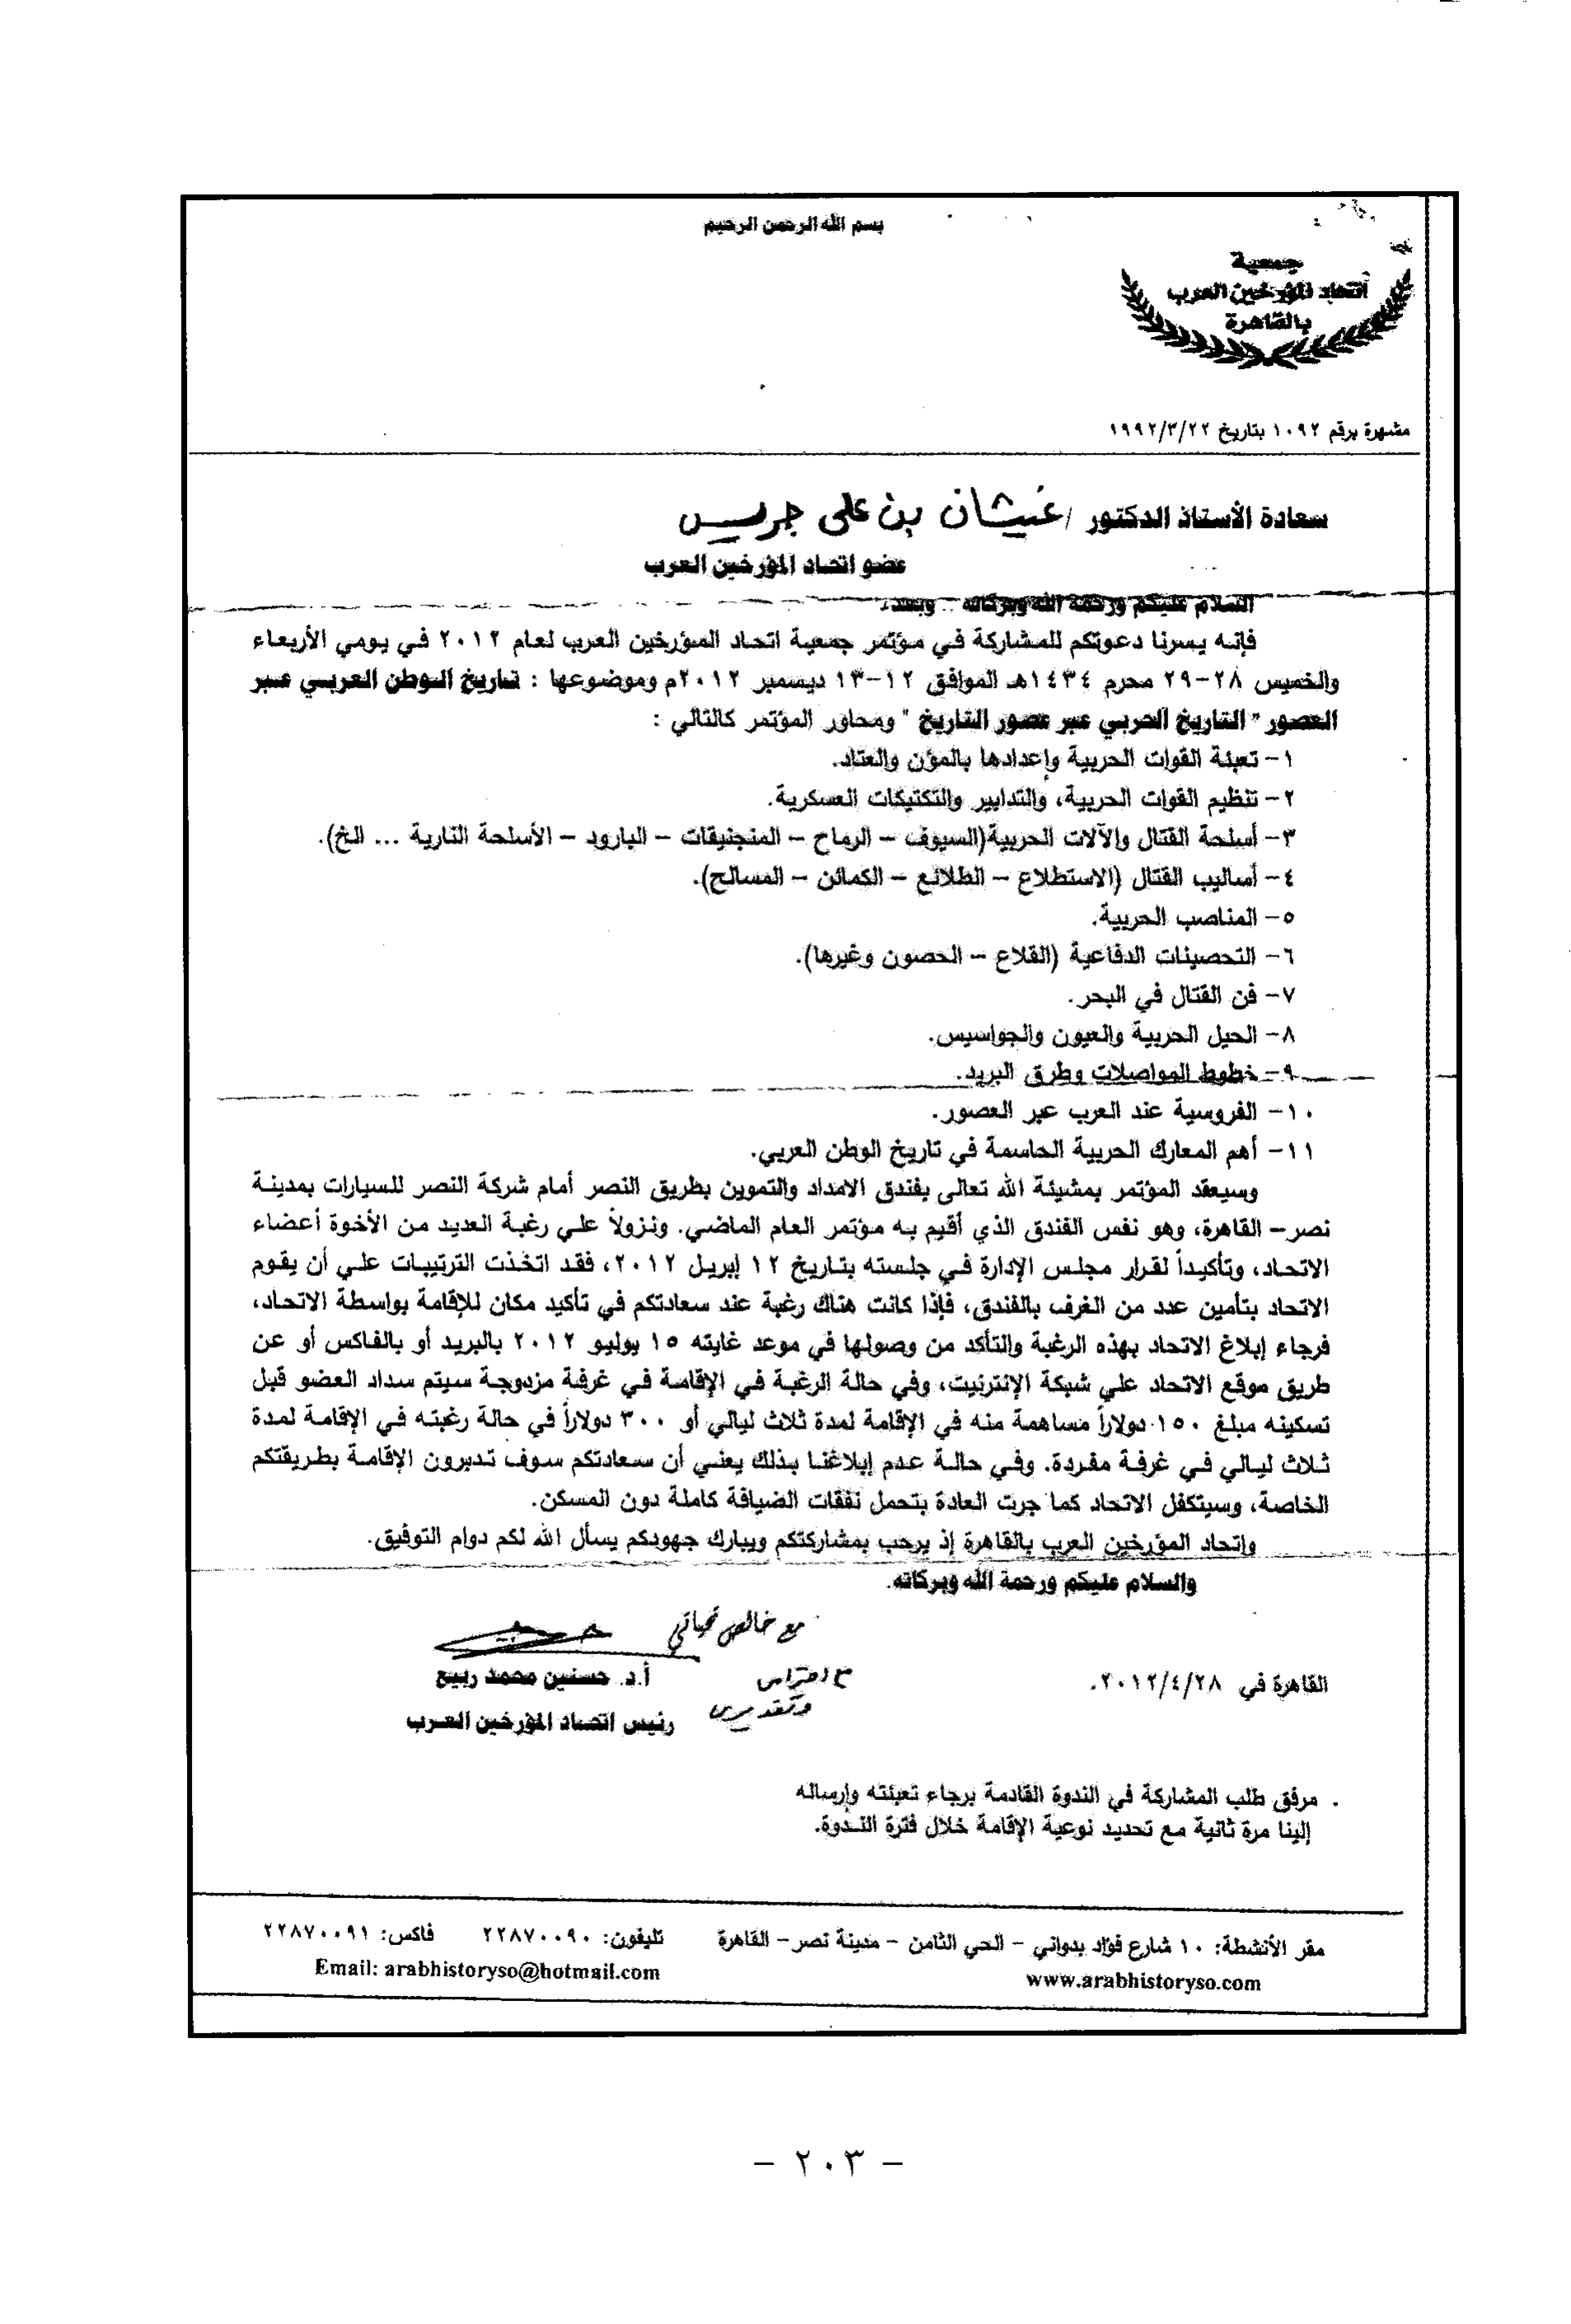 بسم الله الرحمن الرحيم
جمعية
اتحاد المؤرخين العرب
بالقاهرة
مشهرة برقم ١٠٩٢ بتاريخ ١٩٩٢/٣/٢٢
سعادة الأستاذ الدكتور / غيثان بن على جريس
عضو اتحاد المؤرخين العرب
السلام عليكم ورحمة الله وبركاته .. وبعد،
فإنه يسرنا دعوتكم للمشاركة في مؤتمر جمعية اتحاد المؤرخين العرب لعام ٢٠١٢ في يومي الأربعاء
والخميس ٢٨-٢٩ محرم ١٤٣٤هـ الموافق ١٢-١٣ ديسمبر ٢٠١٢م وموضوعها : تاريخ الوطن العربي عبر
العصور " التاريخ الحربي عبر عصور التاريخ " ومحاور المؤتمر كالتالي :
١- تعبئة القوات الحربية وإعدادها بالمؤن والعتاد.
٢- تنظيم القوات الحربية، والتدابير والتكتيكات العسكرية.
٣- أسلحة القتال والآلات الحربية(السيوف - الرماح - المنجنيقات - البارود - الأسلحة النارية ... الخ).
٤- أساليب القتال (الاستطلاع - الطلائع - الكمائن - المسالح).
٥- المناصب الحربية.
٦- التحصينات الدفاعية (القلاع - الحصون وغيرها).
٧- فن القتال في البحر.
٨- الحيل الحربية والعيون والجواسيس.
٩- خطوط المواصلات وطرق البريد.
١٠- الفروسية عند العرب عبر العصور.
١١- أهم المعارك الحربية الحاسمة في تاريخ الوطن العربي.
وسيعقد المؤتمر بمشيئة الله تعالى بفندق الامداد والتموين بطريق النصر أمام شركة النصر للسيارات بمدينة
نصر- القاهرة، وهو نفس الفندق الذي أقيم به مؤتمر العام الماضي. ونزولاً علي رغبة العديد من الأخوة أعضاء
الاتحاد، وتأكيداً لقرار مجلس الإدارة في جلسته بتاريخ ١٢ إبريل ٢٠١٢، فقد اتخذت الترتيبات علي أن يقوم
الاتحاد بتأمين عدد من الغرف بالفندق، فإذا كانت هناك رغبة عند سعادتكم في تأكيد مكان للإقامة بواسطة الاتحاد،
فرجاء إبلاغ الاتحاد بهذه الرغبة والتأكد من وصولها في موعد غايته ١٥ يوليو ٢٠١٢ بالبريد أو بالفاكس أو عن
طريق موقع الاتحاد علي شبكة الإنترنيت، وفي حالة الرغبة في الإقامة في غرفة مزدوجة سيتم سداد العضو قبل
تسكينه مبلغ ١٥٠ دولاراً مساهمة منه في الإقامة لمدة ثلاث ليالي أو ٣٠٠ دولاراً في حالة رغبته في الإقامة لمدة
ثلاث ليالي في غرفة مفردة. وفي حالة عدم إبلاغنا بذلك يعني أن سعادتكم سوف تدبرون الإقامة بطريقتكم
الخاصة، وسيتكفل الاتحاد كما جرت العادة بتحمل نفقات الضيافة كاملة دون المسكن.
واتحاد المؤرخين العرب بالقاهرة إذ يرحب بمشاركتكم ويبارك جهودكم يسأل الله لكم دوام التوفيق.
والسلام عليكم ورحمة الله وبركاته.
مع خالص تحياتي
القاهرة في ٢٠١٢/٤/٢٨.
وتقديرى
أ.د. حسنين محمد ربيع
رئيس اتحاد المؤرخين العرب
. مرفق طلب المشاركة في الندوة القادمة برجاء تعبئته وإرساله
إلينا مرة ثانية مع تحديد نوعية الإقامة خلال فترة الندوة.
مقر الأنشطة: ١٠ شارع فؤاد بدواني - الحي الثامن - مدينة نصر- القاهرة تليفون: ٢٢٨٧٠٠٩٠ فاكس: ٢٢٨٧٠٠٩١
www.arabhistoryso.com Email: arabhistoryso@hotmail.com
- ٢٠٣ -